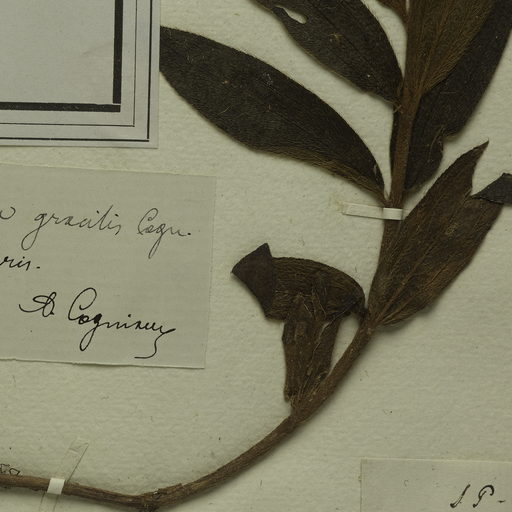 gracilis Cogn.
ris.
A. Cogniaux
S P-